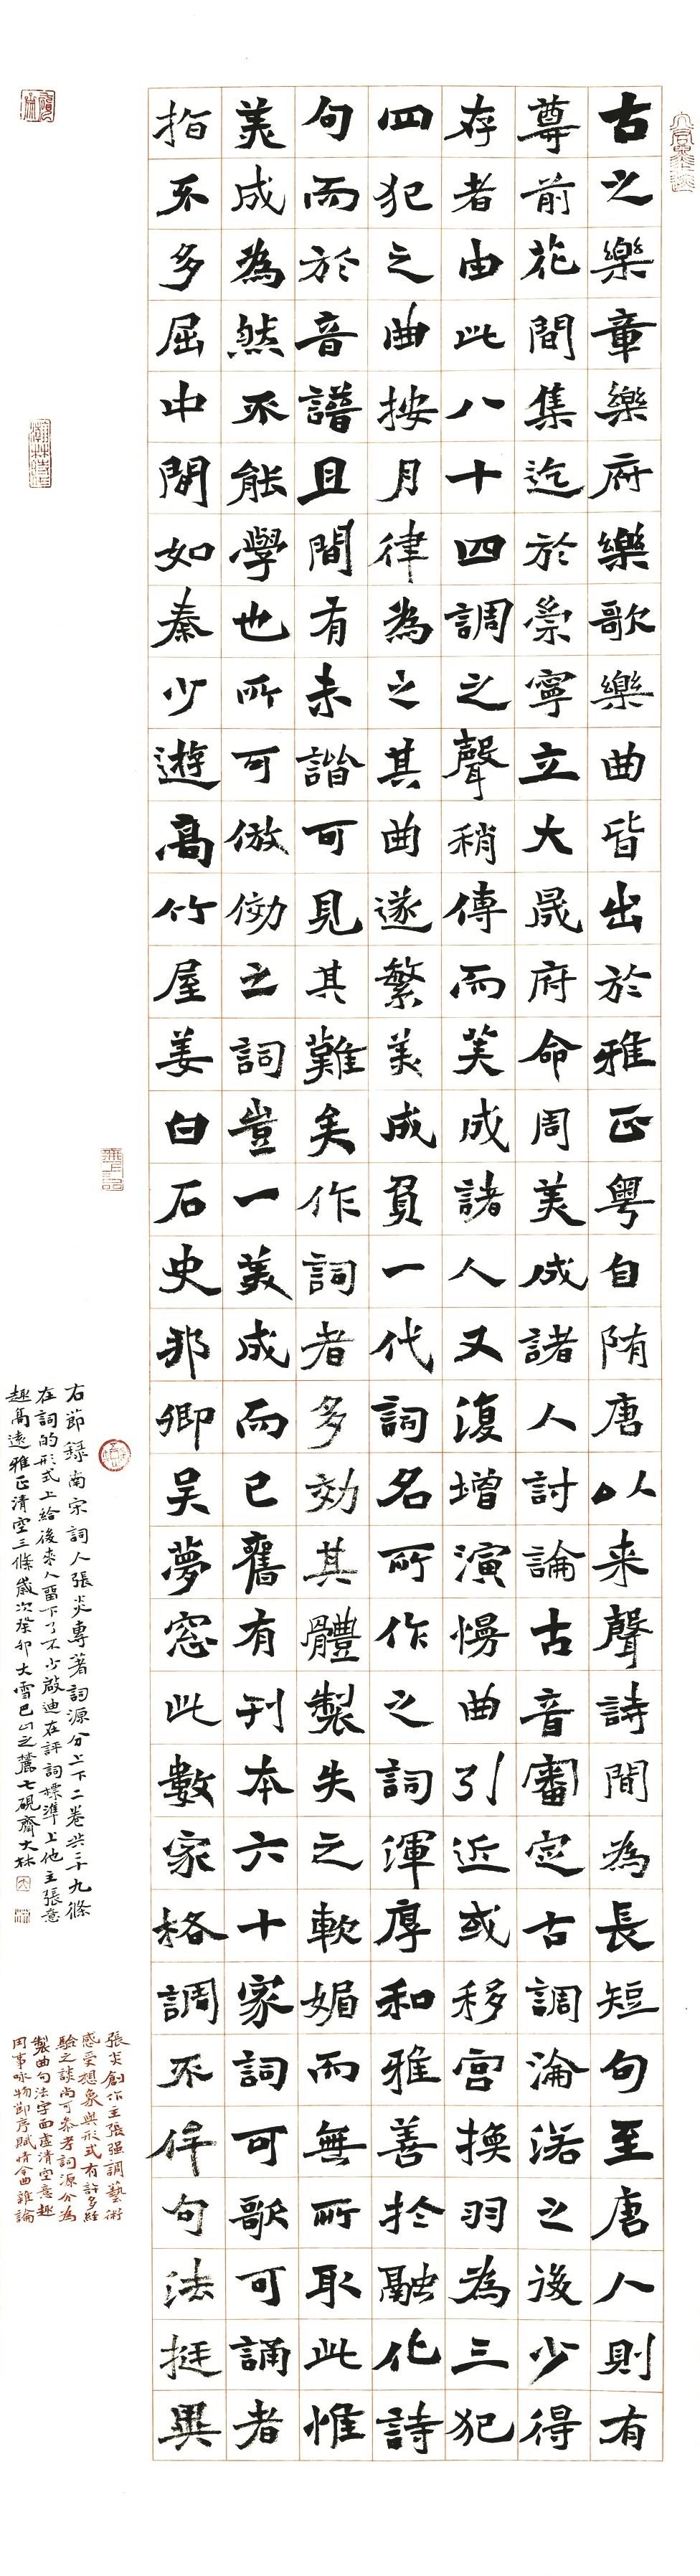 古之樂章樂府樂歌樂曲皆出於雅正粵自隋唐以来聲詩間為長短句至唐人則有
尊前花間集迄於崇寧立大晟府命周美成諸人討論古音審定古調淪落之後少得
存者由此八十四調之聲稍傳而美成諸人又復增演慢曲引近或移宮換羽為三犯
四犯之曲按月律為之其曲遂繁美成負一代詞名所作之詞渾厚和雅善於融化詩
句而於音譜且間有未諧可見其難矣作詞者多効其體製失之軟媚而無所取此惟
美成為然不能學也所可倣効之詞豈一美成而已舊有刊本六十家詞可歌可誦者
指不多屈中間如秦少遊高竹屋姜白石史邦卿吳夢窓此數家格調不侔句法挺異
右節録南宋詞人張炎專著詞源分上下二卷共三十九條
在詞的形式上給後来人留下了不少啟迪在評詞標準上他主張意
趣高遠雅正清空三條歲次癸卯大雪巴山之麓七硯齋大林
張炎創作主張强調藝術
感受想象與形式有許多經
驗之談尚可參考詞源分為
製曲句法字面虛清空意趣
用事咏物節序賦情令曲雜論